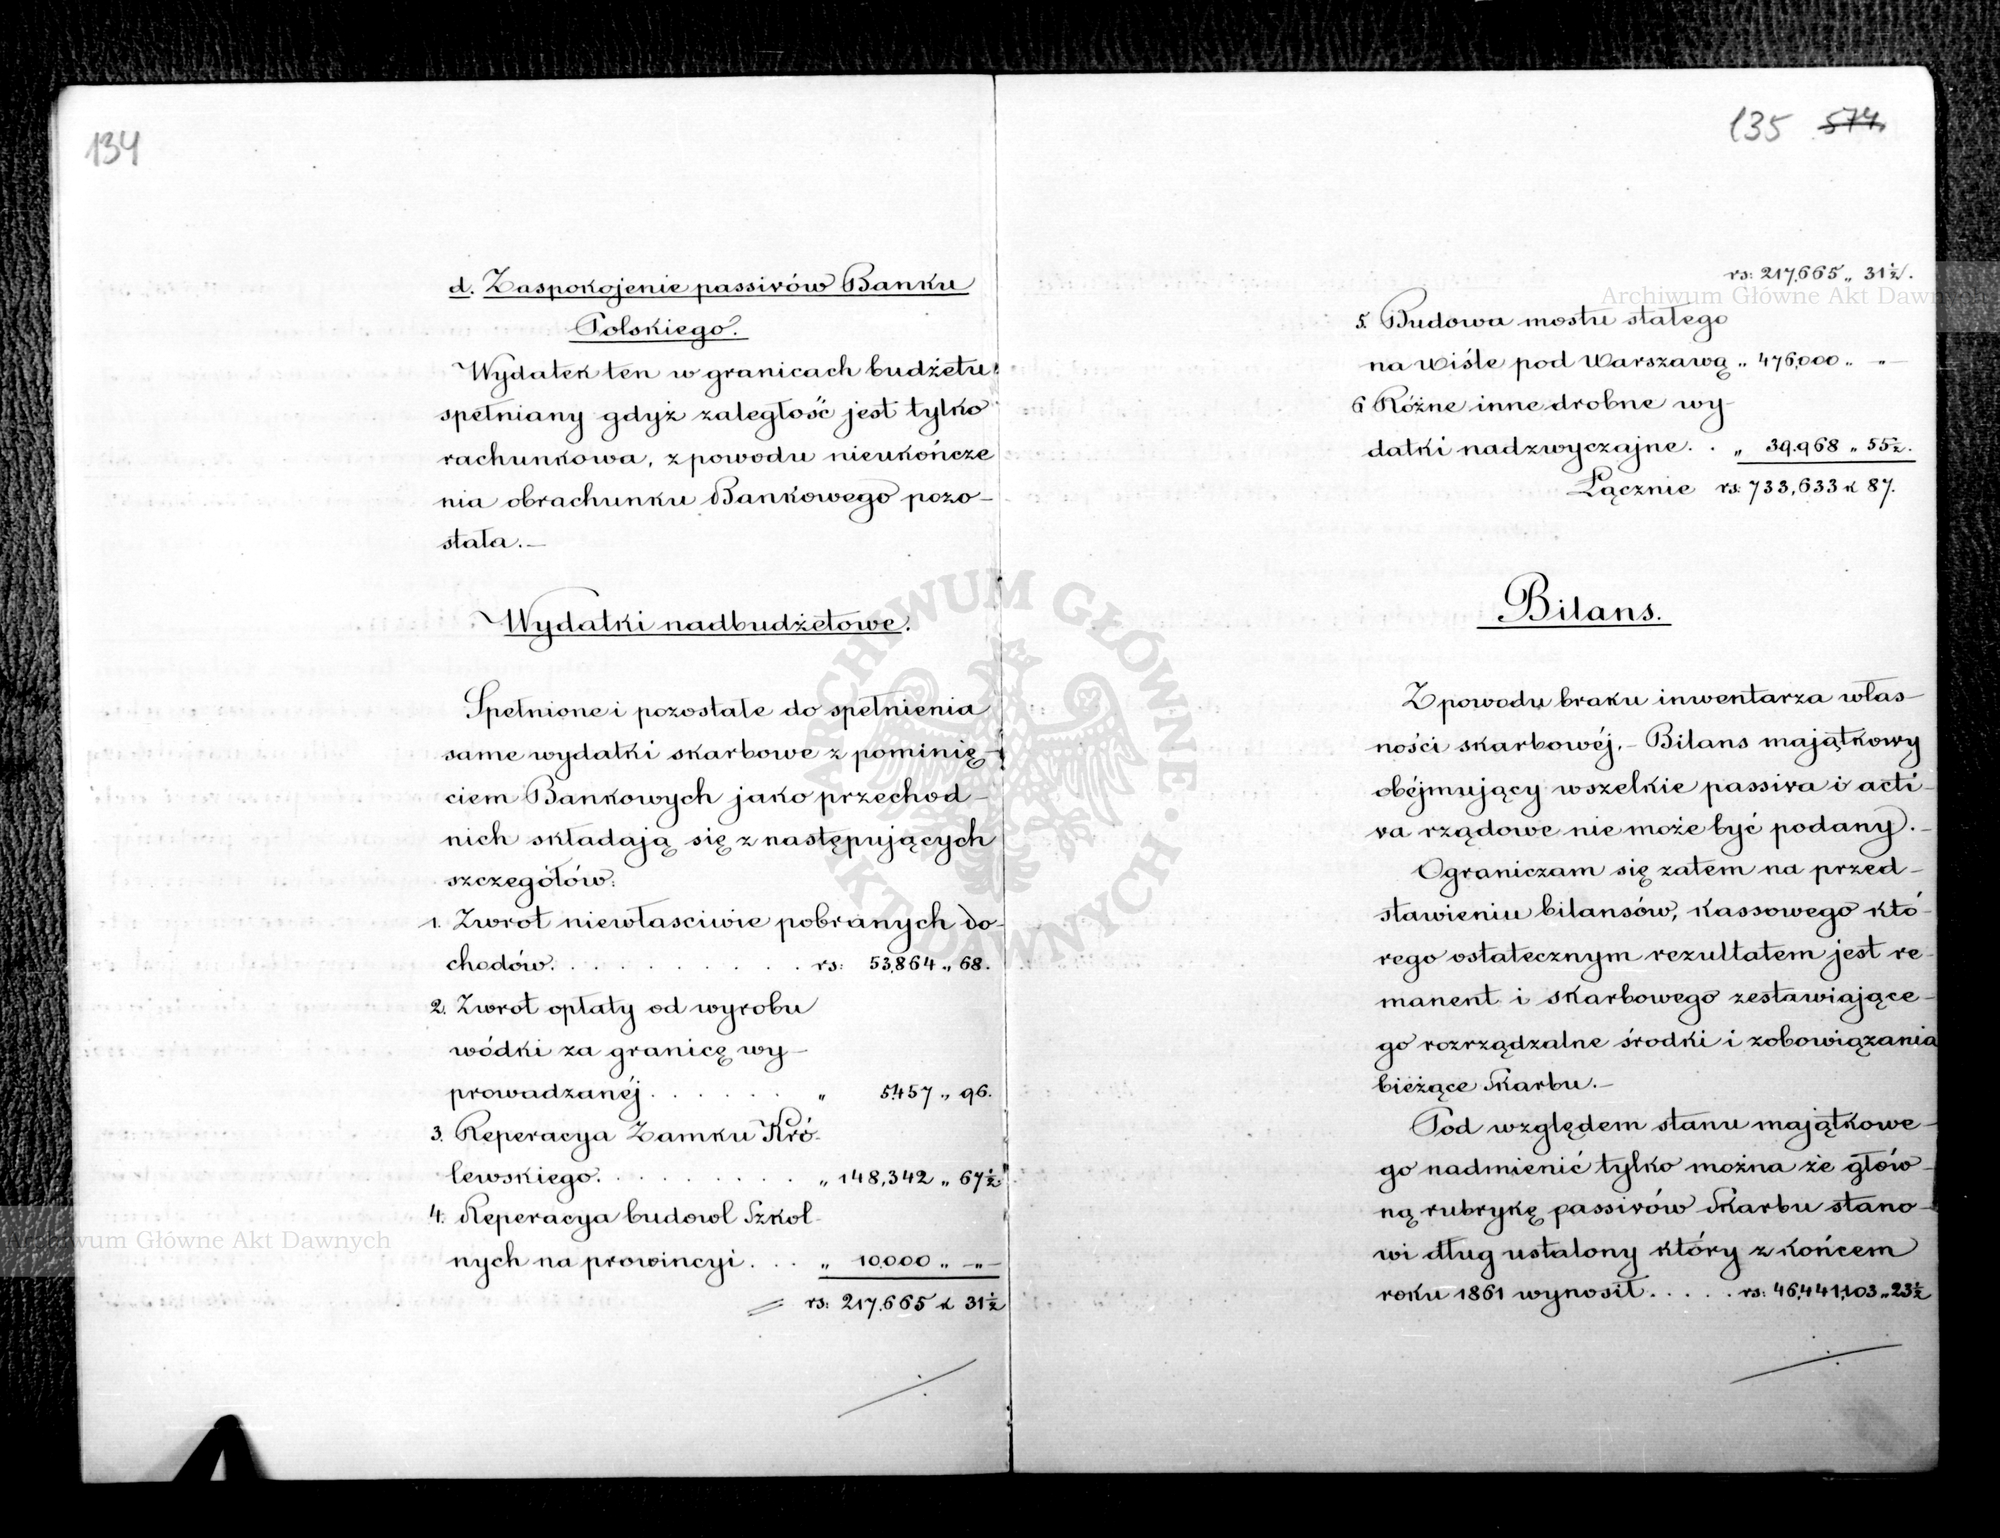 134
d. Zaspokojenie passivów Banku
Polskiego.
Wydatek ten w granicach budżetu
spełniany gdyż zaległość jest tylko
rachunkowa, z powodu nieukończe
nia obrachunku Bankowego pozo-
stała.-
Wydatki nadbudżetowe.
Spełnione i pozostałe do spełnienia
same wydatki skarbowe z pominię-
ciem Bankowych jako przechod-
nich składają się z następujących
szczegółów:
1. Zwrot niewłasciwie pobranych do-
chodów. . . . . . . . . . . rs: 53,864 „ 68.
2. Zwrot opłaty od wyrobu
wódki za granicę wy-
prowadzanéj . . . . . . „ 5457 „ 96.
3. Reperacya Zamku Kró-
lewskiego. . . . . . . . . „ 148,342 „ 67½
4. Reperacya budowl Szkol-
nych na prowincyi. . . „ 10,000 „ -„-
rs: 217,665 k 31½
135 574
rs: 217,665 „ 31½.
5. Budowa mostu stałego
na Wiśle pod Warszawą „ 476,000 „ -„-
6 Różne inne drobne wy-
datki nadzwyczajne. . „ 39,968 „ 55½.
Łącznie rs: 733,633 k 87.
Bilans.
Z powodu braku inwentarza włas-
ności skarbowéj,- Bilans majątkowy
obéjmujący wszelkie passiva i acti-
va rządowe nie może być podany.-
Ograniczam się zatem na przed-
stawieniu bilansów, kassowego któ-
rego ostatecznym rezultatem jest re-
manent i skarbowego zestawiające-
go rozrządzalne środki i zobowiązania
bieżące Skarbu.-
Pod względem stanu majątkowe-
go nadmienić tylko można że głów-
ną rubrykę passivów Skarbu stano-
wi dług ustalony który z końcem
roku 1861 wynosił. . . . . rs: 46,441,103 „ 23½
Archiwum Główne Akt Dawnych
Archiwum Główne Akt Dawnych
ARCHIWUM GŁÓWNE AKT DAWNYCH